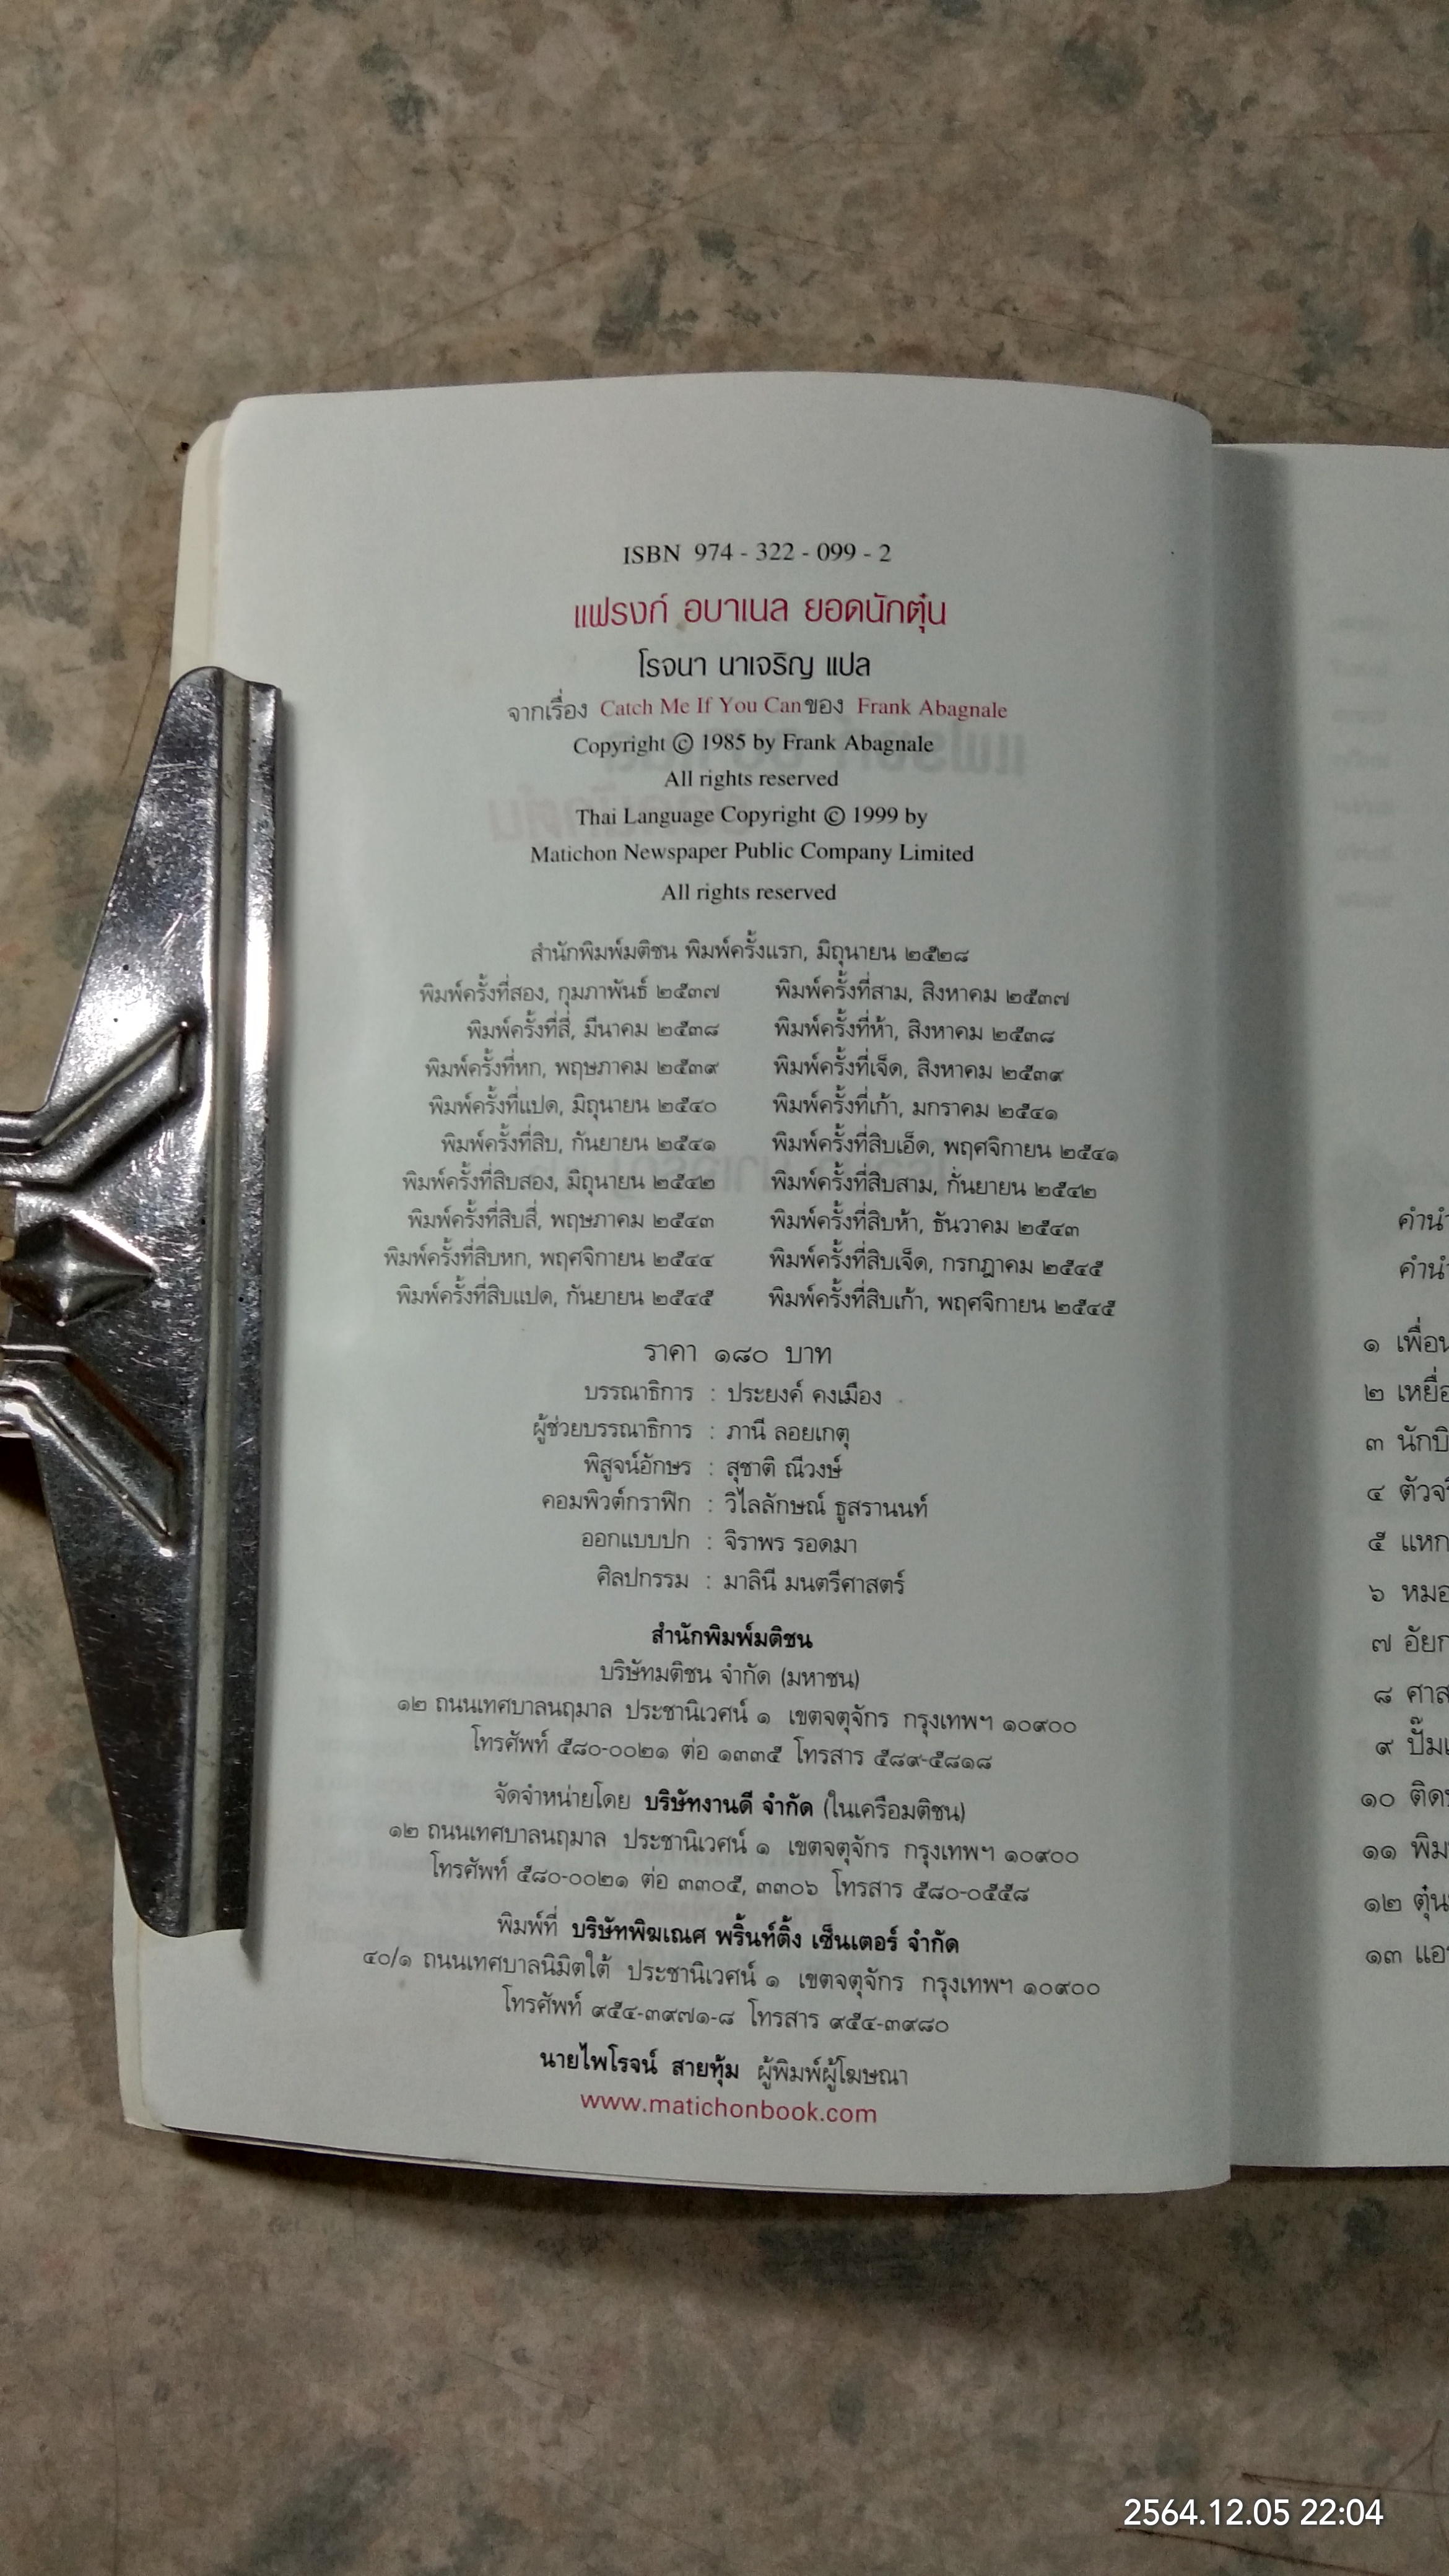 ISBN 974 - 322 - 099 - 2
แฟรงก์ อบาเนล ยอดนักตุ๋น
โรจนา นาเจริญ แปล
จากเรื่อง Catch Me If You Can ของ Frank Abagnale
Copyright © 1985 by Frank Abagnale
All rights reserved
Thai Language Copyright © 1999 by
Matichon Newspaper Public Company Limited
All rights reserved
สำนักพิมพ์มติชน พิมพ์ครั้งแรก, มิถุนายน ๒๕๒๘
พิมพ์ครั้งที่สอง, กุมภาพันธ์ ๒๕๓๗ พิมพ์ครั้งที่สาม, สิงหาคม ๒๕๓๗
พิมพ์ครั้งที่สี่, มีนาคม ๒๕๓๘ พิมพ์ครั้งที่ห้า, สิงหาคม ๒๕๓๘
พิมพ์ครั้งที่หก, พฤษภาคม ๒๕๓๙ พิมพ์ครั้งที่เจ็ด, สิงหาคม ๒๕๓๙
พิมพ์ครั้งที่แปด, มิถุนายน ๒๕๔๐ พิมพ์ครั้งที่เก้า, มกราคม ๒๕๔๑
พิมพ์ครั้งที่สิบ, กันยายน ๒๕๔๑ พิมพ์ครั้งที่สิบเอ็ด, พฤศจิกายน ๒๕๔๑
พิมพ์ครั้งที่สิบสอง, มิถุนายน ๒๕๔๒ พิมพ์ครั้งที่สิบสาม, กันยายน ๒๕๔๒
พิมพ์ครั้งที่สิบสี่, พฤษภาคม ๒๕๔๓ พิมพ์ครั้งที่สิบห้า, ธันวาคม ๒๕๔๓
พิมพ์ครั้งที่สิบหก, พฤศจิกายน ๒๕๔๔ พิมพ์ครั้งที่สิบเจ็ด, กรกฎาคม ๒๕๔๕
พิมพ์ครั้งที่สิบแปด, กันยายน ๒๕๔๕ พิมพ์ครั้งที่สิบเก้า, พฤศจิกายน ๒๕๔๕
ราคา ๑๘๐ บาท
บรรณาธิการ : ประยงค์ คงเมือง
ผู้ช่วยบรรณาธิการ : ภานี ลอยเกตุ
พิสูจน์อักษร : สุชาติ ณีวงษ์
คอมพิวต์กราฟิก : วิไลลักษณ์ ธูสรานนท์
ออกแบบปก : จิราพร รอดมา
ศิลปกรรม : มาลินี มนตรีศาสตร์
สำนักพิมพ์มติชน
บริษัทมติชน จำกัด (มหาชน)
๑๒ ถนนเทศบาลนฤมาล ประชานิเวศน์ ๑ เขตจตุจักร กรุงเทพฯ ๑๐๙๐๐
โทรศัพท์ ๕๘๐-๐๐๒๑ ต่อ ๑๓๓๕ โทรสาร ๕๘๙-๕๘๑๘
จัดจำหน่ายโดย บริษัทงานดี จำกัด (ในเครือมติชน)
๑๒ ถนนเทศบาลนฤมาล ประชานิเวศน์ ๑ เขตจตุจักร กรุงเทพฯ ๑๐๙๐๐
โทรศัพท์ ๕๘๐-๐๐๒๑ ต่อ ๓๓๐๕, ๓๓๐๖ โทรสาร ๕๘๐-๐๕๕๘
พิมพ์ที่ บริษัทพิฆเณศ พริ้นท์ติ้ง เซ็นเตอร์ จำกัด
๔๐/๑ ถนนเทศบาลนิมิตใต้ ประชานิเวศน์ ๑ เขตจตุจักร กรุงเทพฯ ๑๐๙๐๐
โทรศัพท์ ๙๕๔-๓๙๗๑-๘ โทรสาร ๙๕๔-๓๙๘๐
นายไพโรจน์ สายทุ้ม ผู้พิมพ์ผู้โฆษณา
www.matichonbook.com
คำนำ
คำนำ
๑ เพื่อน
๒
๓ นักบิ
๔
๕ แหก
๖ หมอ
๗
๘ ศาส
๙
๑๐ ติด
๑๑ พิม
๑๒ ตุ๋น
๑๓
2564.12.05 22:04